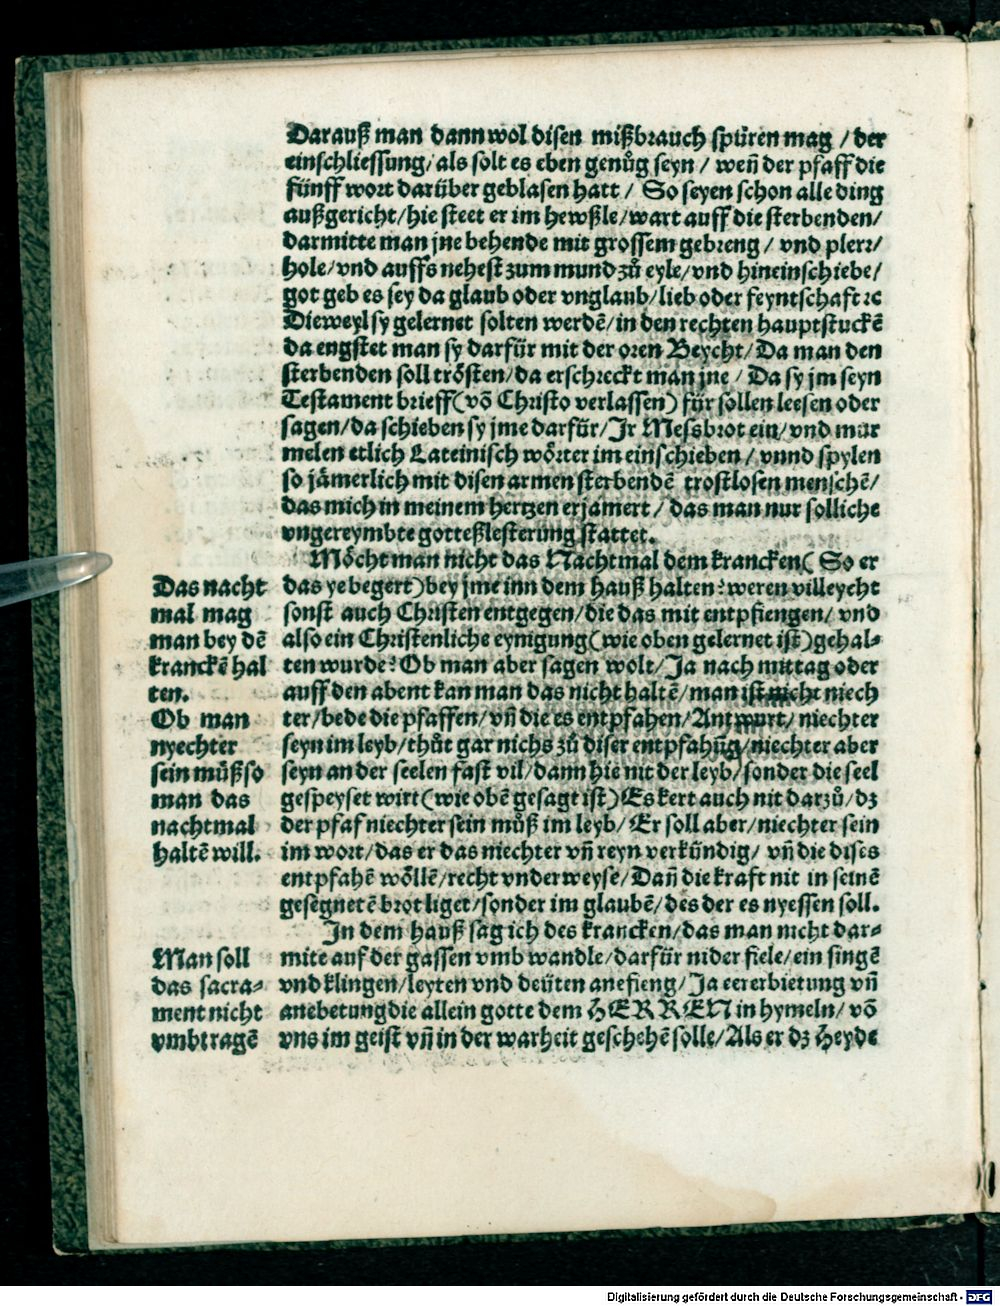 Darauß man dann wol disen mißbrauch spüren mag / der
einschliessung/ als solt es eben genůg seyn / weñ der pfaff die
fünff wort darüber geblasen hatt / So seyen schon alle ding
außgericht/ hie steet er im hewßle/ wart auff die sterbenden/
darmitte man jne behende mit grossem gebreng / vnd plerr/
hole/ vnd auffs nehest zum mund zů eyle/ vnd hineinschiebe/
got geb es sey da glaub oder vnglaub/ lieb oder feyntschaft ꝛc
Dieweyl sy gelernet solten werdē/ in den rechten hauptstuckē
da engstet man sy darfür mit der oren Beycht/ Da man den
sterbenden soll trösten/ da erschreckt man jne / Da sy jm seyn
Testament brieff (vō Christo verlassen) für sollen leesen oder
sagen/ da schieben sy jme darfür/ Jr Messbrot ein/ vnd mur
melen etlich Lateinisch wörter im einschieben / vnnd spylen
so jämerlich mit disen armen sterbendē trostlosen menschē/
das mich in meinem hertzen erjamert / das man nur solliche
vngereymbte gotteßlesterung stattet.
Möcht man nicht das Nachtmal dem krancken( So er
das ye begert) bey jme inn dem hauß halten? weren villeycht
sonst auch Christen entgegen/ die das mit entpfiengen/ vnd
also ein Christenliche eynigung (wie oben gelernet ist) gehal-
ten wurde? Ob man aber sagen wolt/ Ja nach mittag oder
auff den abent kan man das nicht haltē/ man ist nicht niech
ter/ bede die pfaffen/ vñ die es entpfahen/ Antwurt/ niechter
seyn im leyb/ thůt gar nichs zů diser entpfahūg/ niechter aber
seyn an der seelen fast vil/ dann hie nit der leyb/ sonder die seel
gespeyset wirt (wie obē gesagt ist) Es kert auch nit darzů/ dz
der pfaf niechter sein můß im leyb/ Er soll aber/ niechter sein
im wort/ das er das niechter vñ reyn verkündig/ vñ die dises
entpfahē wöllē/ recht vnderweyse/ Dañ die kraft nit in seinē
gesegnetē brot liget/ sonder im glaubē/ des der es nyessen soll.
In dem hauß sag ich des krancken/ das man nicht dar-
mite auf der gassen vmb wandle/ darfür nider fiele/ ein singē
vnd klingen/ leyten vnd deüten anefieng/ Ja eererbietung vñ
anebetung die allein gotte dem HERREN in hymeln/ vō
vns im geist vñ in der warheit geschehē solle/ Als er dz Heyde
Das nacht
mal mag
man bey dē
kranckē hal
ten.
Ob man
nyechter
sein můß so
man das
nachtmal
haltē will.
Man soll
das sacra-
ment nicht
vmbtragē
Digitalisierung gefördert durch die Deutsche Forschungsgemeinschaft - DFG